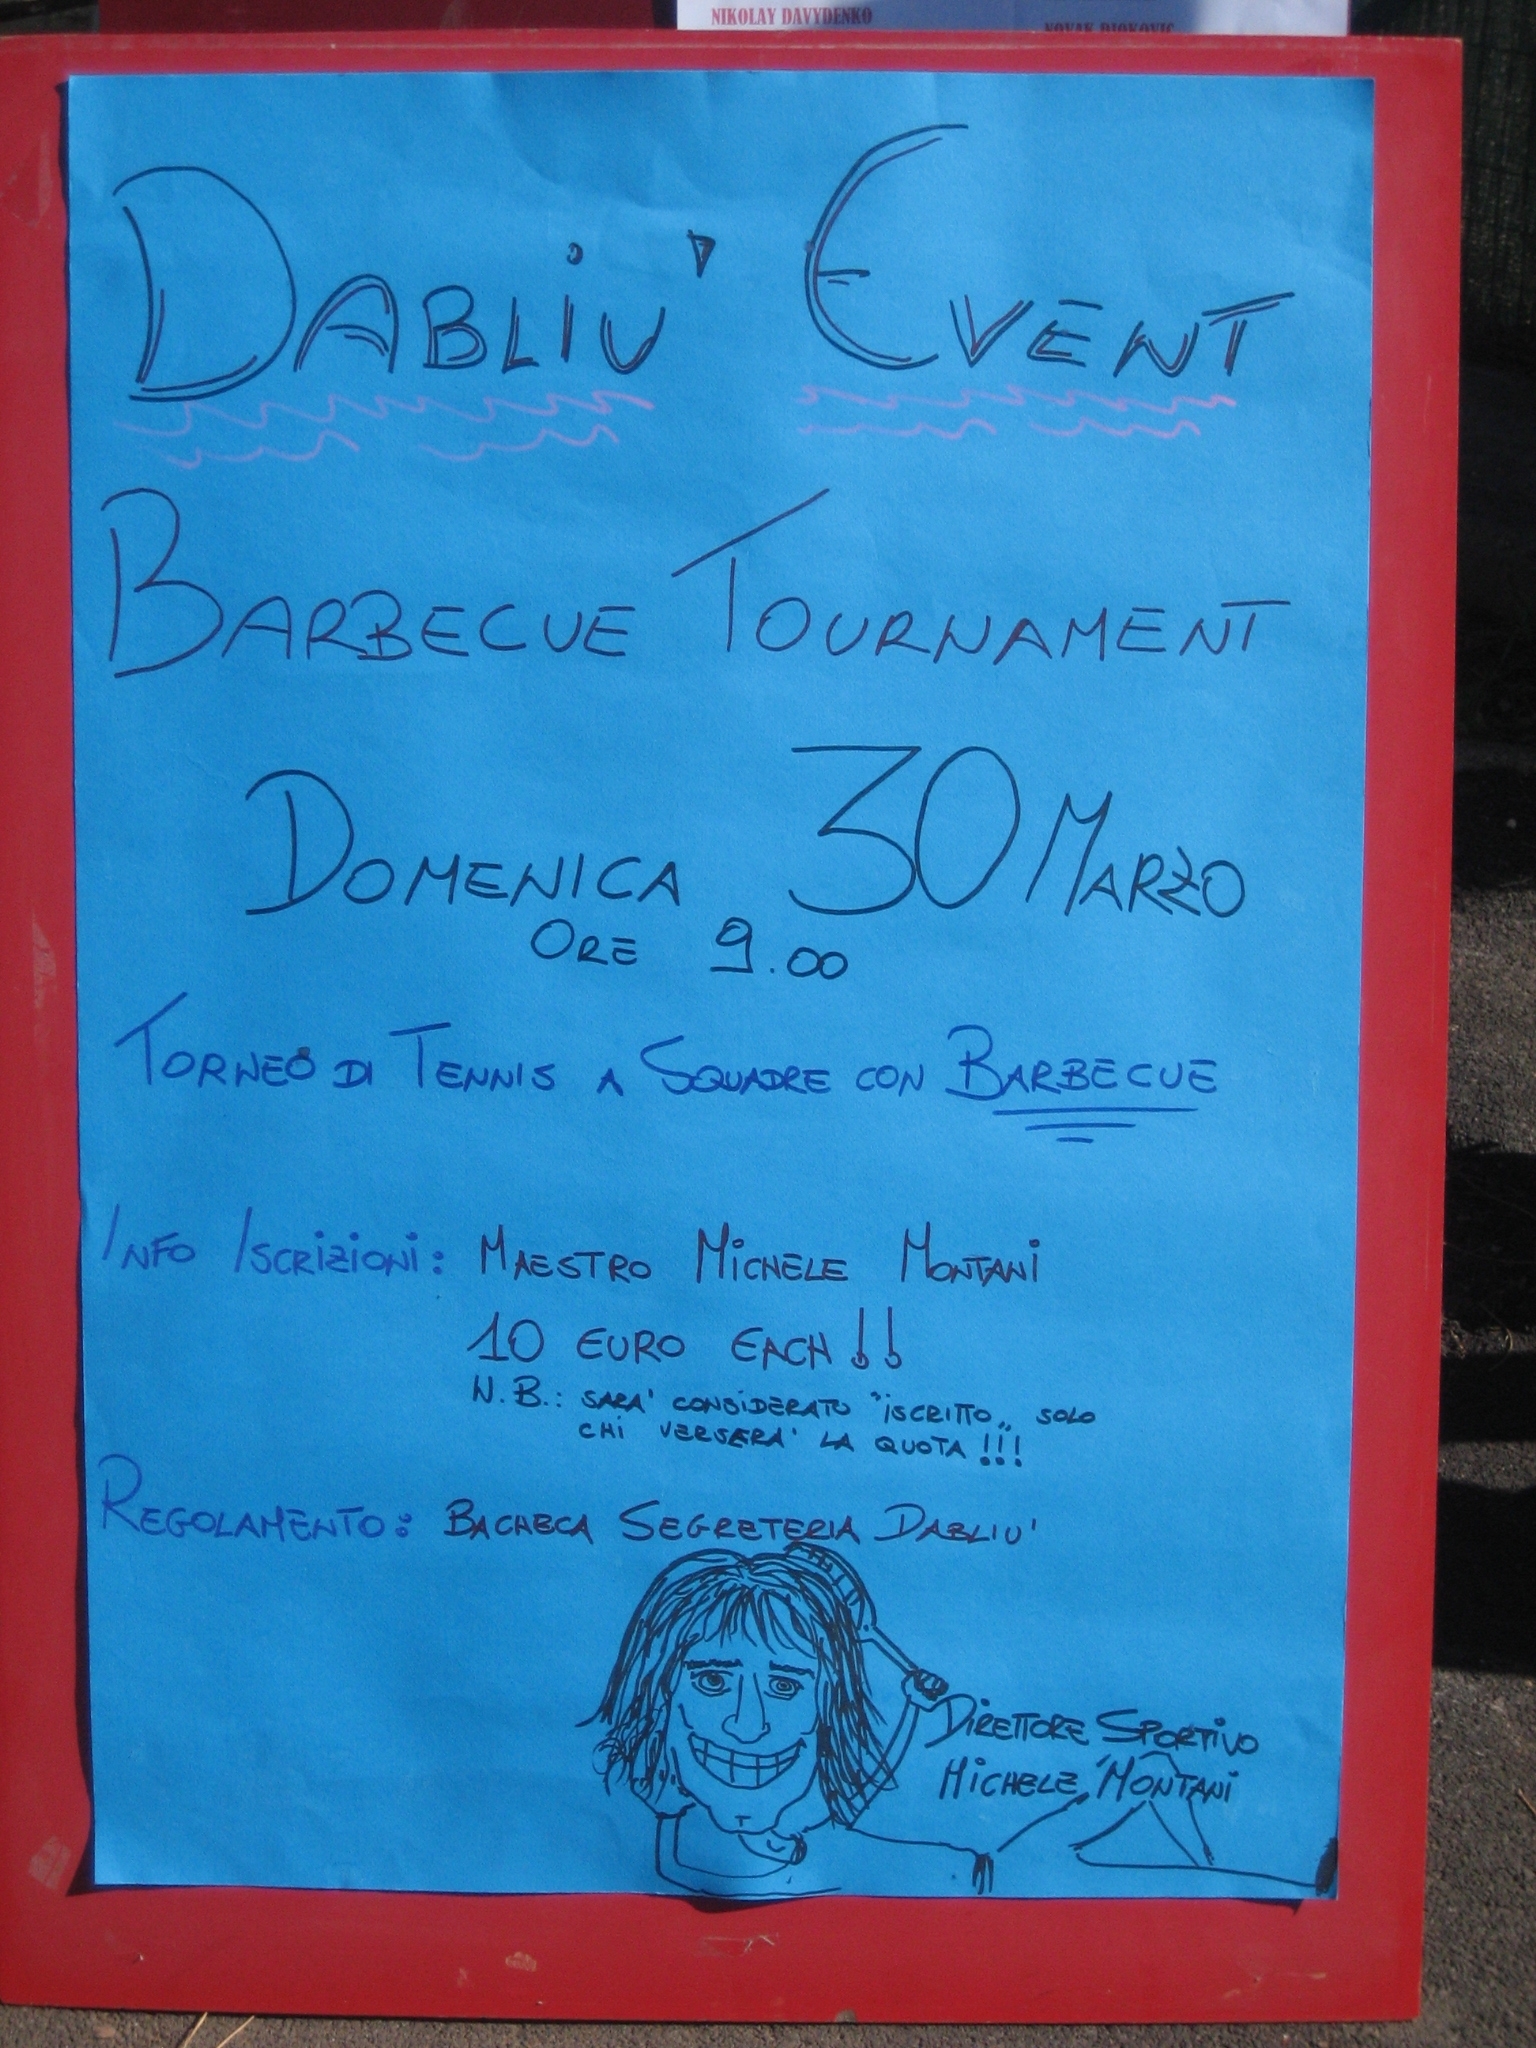 NIKOLAY DAVYDENKO
NOVAK DJOKOVIC
DABLiU' EVENT
BARBECUE TOURNAMENT
DOMENICA 30 MARZO
ORE 9.00
TORNEO DI TENNIS A SQUADRE CON BARBECUE
INFO ISCRIZIONI: MAESTRO MICHELE MONTANI
10 EURO EACH!!
N.B.: SARA' CONSIDERATO "ISCRITTO„ SOLO
CHI VERSERA' LA QUOTA!!!
REGOLAMENTO: BACHECA SEGRETERIA DABLIU'
DIRETTORE SPORTIVO
MICHELE MONTANI